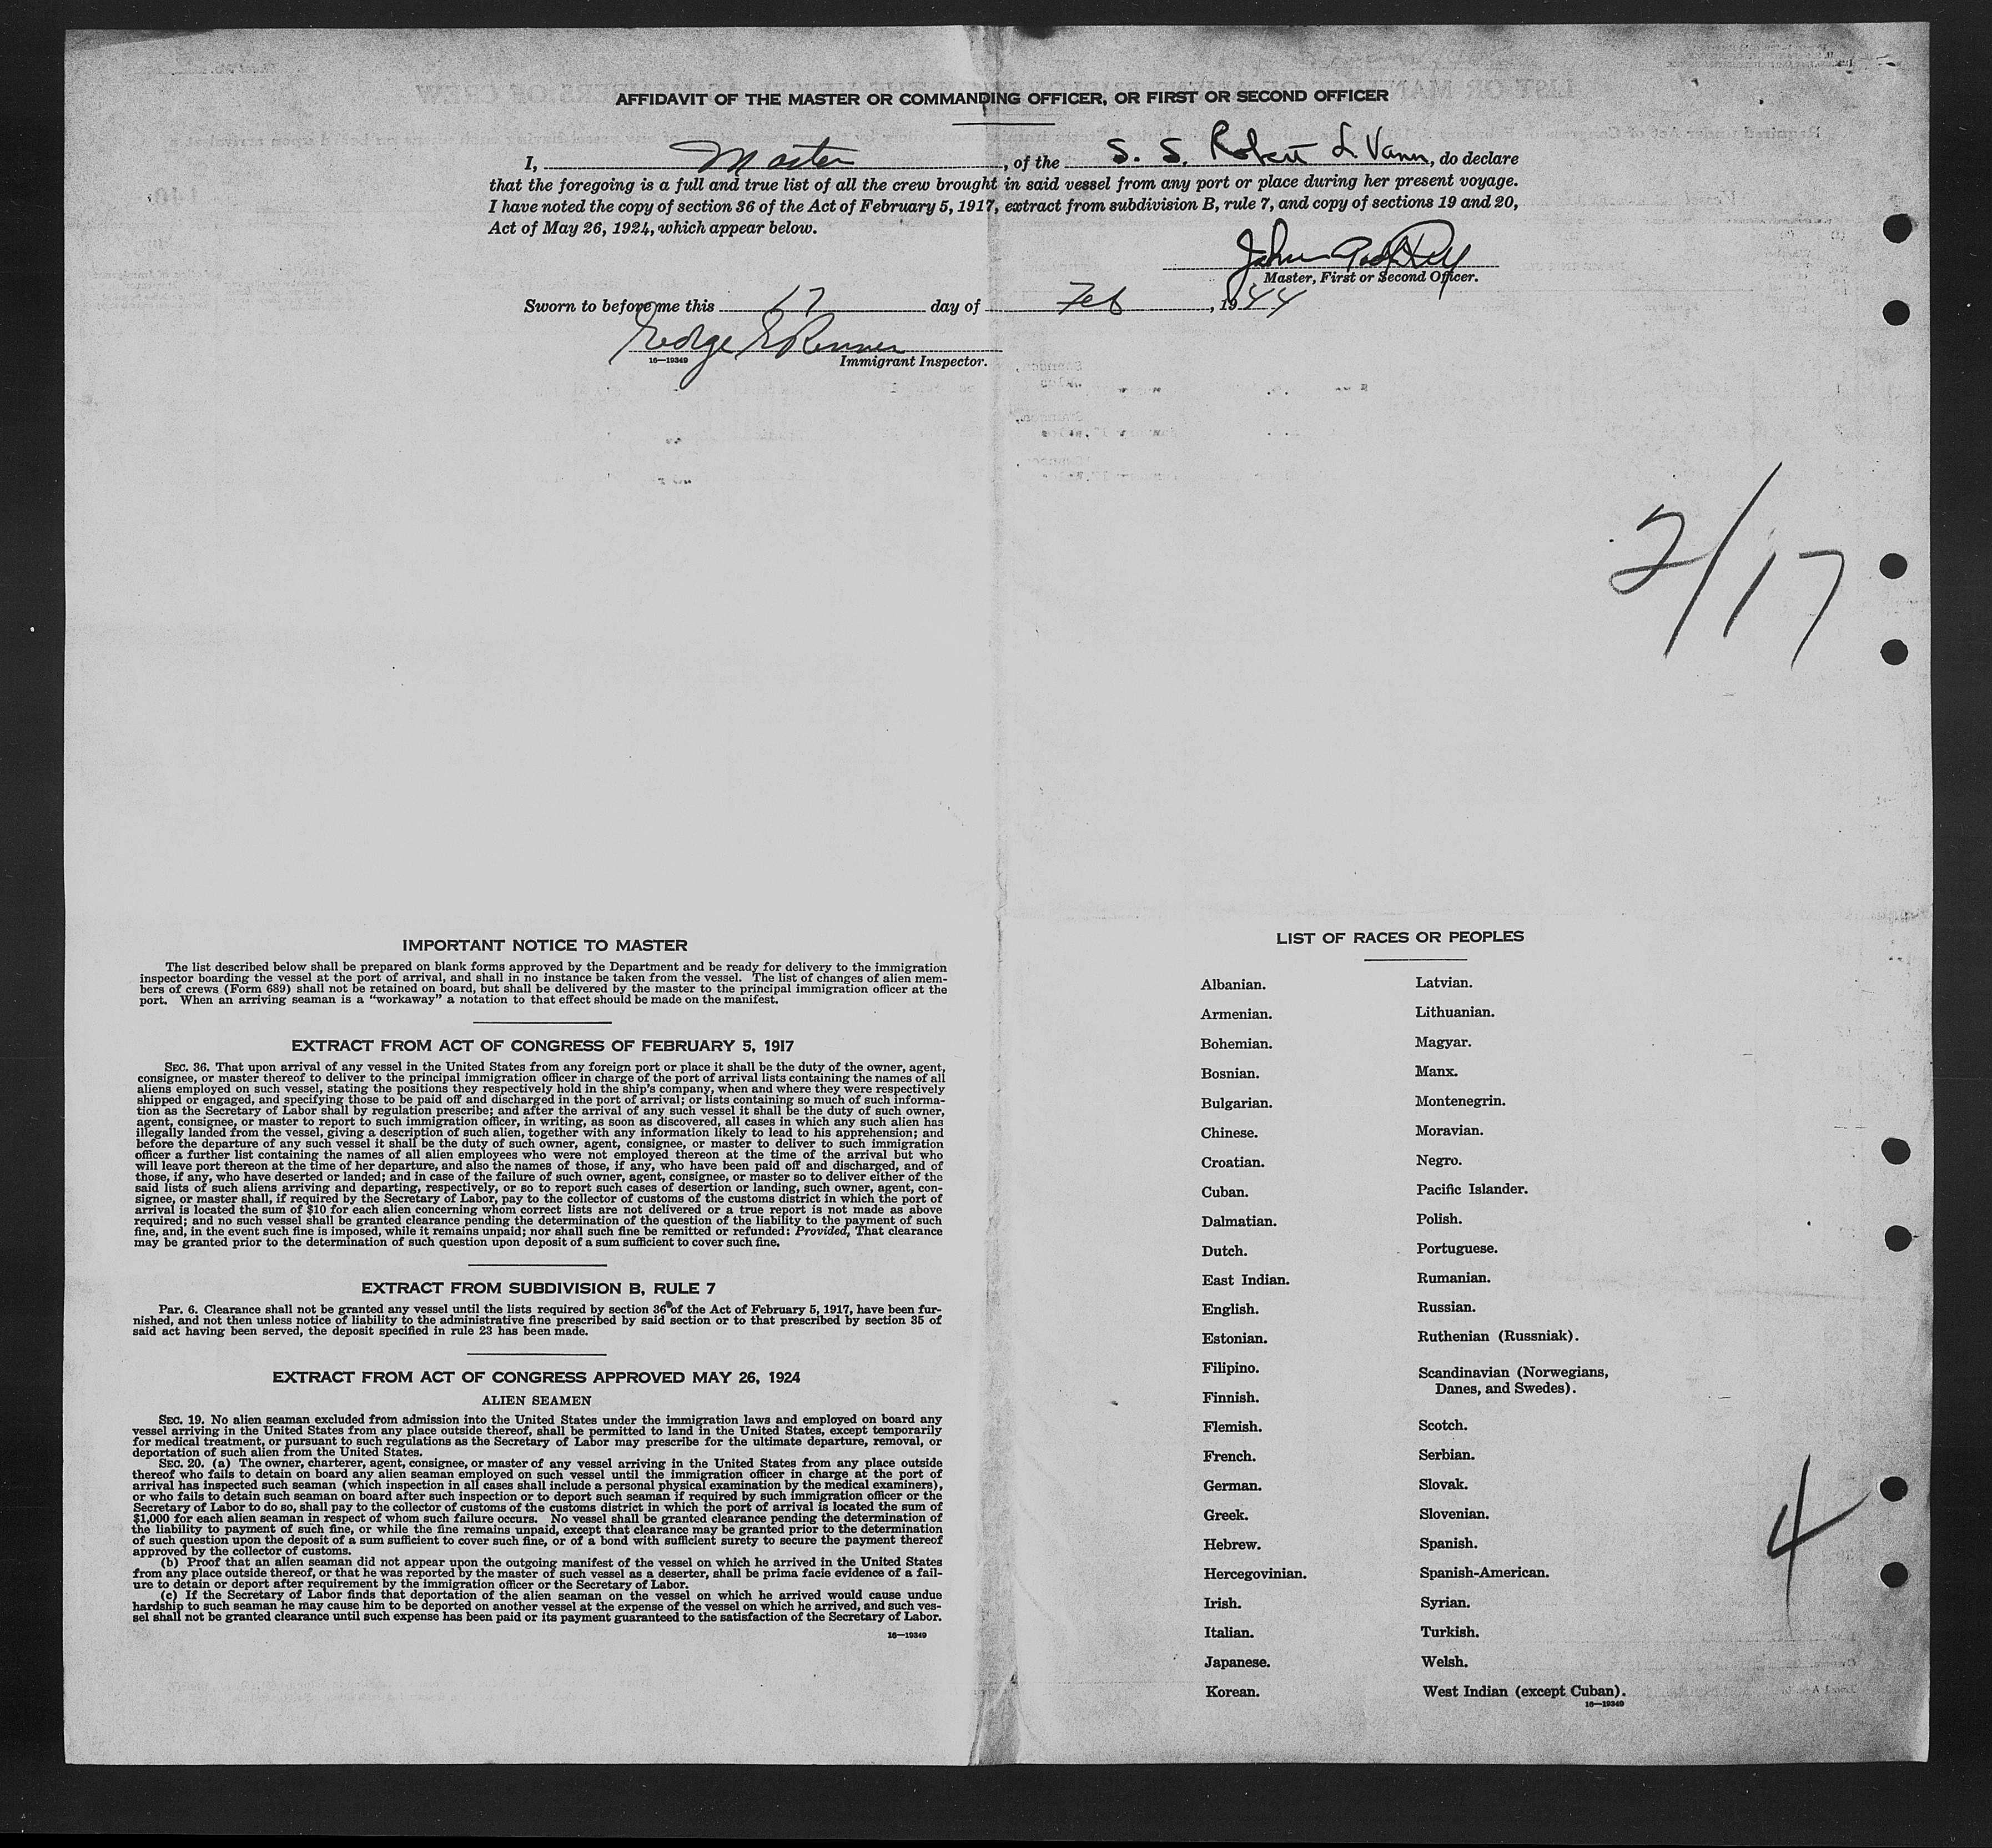 AFFIDAVIT OF THE MASTER OR COMMANDING OFFICER, OR FIRST OR SECOND OFFICER
I, Master, of the S. S. Robert L Vann, do declare
that the foregoing is a full and true list of all the crew brought in said vessel from any port or place during her present voyage.
I have noted the copy of section 36 of the Act of February 5, 1917, extract from subdivision B, rule 7, and copy of sections 19 and 20,
Act of May 26, 1924, which appear below.
John
Master, First or Second Officer.
Sworn to before me this 17 day of Feb, 1944
George E Renner
16—19349 Immigrant Inspector.
2/17
IMPORTANT NOTICE TO MASTER
The list described below shall be prepared on blank forms approved by the Department and be ready for delivery to the immigration
inspector boarding the vessel at the port of arrival, and shall in no instance be taken from the vessel. The list of changes of alien mem-
bers of crews (Form 689) shall not be retained on board, but shall be delivered by the master to the principal immigration officer at the
port. When an arriving seaman is a "workaway" a notation to that effect should be made on the manifest.
EXTRACT FROM ACT OF CONGRESS OF FEBRUARY 5, 1917
SEC. 36. That upon arrival of any vessel in the United States from any foreign port or place it shall be the duty of the owner, agent,
consignee, or master thereof to deliver to the principal immigration officer in charge of the port of arrival lists containing the names of all
aliens employed on such vessel, stating the positions they respectively hold in the ship's company, when and where they were respectively
shipped or engaged, and specifying those to be paid off and discharged in the port of arrival; or lists containing so much of such informa-
tion as the Secretary of Labor shall by regulation prescribe; and after the arrival of any such vessel it shall be the duty of such owner,
agent, consignee, or master to report to such immigration officer, in writing, as soon as discovered, all cases in which any such alien has
illegally landed from the vessel, giving a description of such alien, together with any information likely to lead to his apprehension; and
before the departure of any such vessel it shall be the duty of such owner, agent, consignee, or master to deliver to such immigration
officer a further list containing the names of all alien employees who were not employed thereon at the time of the arrival but who
will leave port thereon at the time of her departure, and also the names of those, if any, who have been paid off and discharged, and of
those, if any, who have deserted or landed; and in case of the failure of such owner, agent, consignee, or master so to deliver either of the
said lists of such aliens arriving and departing, respectively, or so to report such cases of desertion or landing, such owner, agent, con-
signee, or master shall, if required by the Secretary of Labor, pay to the collector of customs of the customs district in which the port of
arrival is located the sum of $10 for each alien concerning whom correct lists are not delivered or a true report is not made as above
required; and no such vessel shall be granted clearance pending the determination of the question of the liability to the payment of such
fine, and, in the event such fine is imposed, while it remains unpaid; nor shall such fine be remitted or refunded: Provided, That clearance
may be granted prior to the determination of such question upon deposit of a sum sufficient to cover such fine.
EXTRACT FROM SUBDIVISION B, RULE 7
Par. 6. Clearance shall not be granted any vessel until the lists required by section 36 of the Act of February 5, 1917, have been fur-
nished, and not then unless notice of liability to the administrative fine prescribed by said section or to that prescribed by section 35 of
said act having been served, the deposit specified in rule 23 has been made.
EXTRACT FROM ACT OF CONGRESS APPROVED MAY 26, 1924
ALIEN SEAMEN
SEC. 19. No alien seaman excluded from admission into the United States under the immigration laws and employed on board any
vessel arriving in the United States from any place outside thereof, shall be permitted to land in the United States, except temporarily
for medical treatment, or pursuant to such regulations as the Secretary of Labor may prescribe for the ultimate departure, removal, or
deportation of such alien from the United States.
SEC. 20. (a) The owner, charterer, agent, consignee, or master of any vessel arriving in the United States from any place outside
thereof who fails to detain on board any alien seaman employed on such vessel until the immigration officer in charge at the port of
arrival has inspected such seaman (which inspection in all cases shall include a personal physical examination by the medical examiners),
or who fails to detain such seaman on board after such inspection or to deport such seaman if required by such immigration officer or the
Secretary of Labor to do so, shall pay to the collector of customs of the customs district in which the port of arrival is located the sum of
$1,000 for each alien seaman in respect of whom such failure occurs. No vessel shall be granted clearance pending the determination of
the liability to payment of such fine, or while the fine remains unpaid, except that clearance may be granted prior to the determination
of such question upon the deposit of a sum sufficient to cover such fine, or of a bond with sufficient surety to secure the payment thereof
approved by the collector of customs.
(b) Proof that an alien seaman did not appear upon the outgoing manifest of the vessel on which he arrived in the United States
from any place outside thereof, or that he was reported by the master of such vessel as a deserter, shall be prima facie evidence of a fail-
ure to detain or deport after requirement by the immigration officer or the Secretary of Labor.
(c) If the Secretary of Labor finds that deportation of the alien seaman on the vessel on which he arrived would cause undue
hardship to such seaman he may cause him to be deported on another vessel at the expense of the vessel on which he arrived, and such ves-
sel shall not be granted clearance until such expense has been paid or its payment guaranteed to the satisfaction of the Secretary of Labor.
16—19349
LIST OF RACES OR PEOPLES
Albanian.
Armenian.
Bohemian.
Bosnian.
Bulgarian.
Chinese.
Croatian.
Cuban.
Dalmatian.
Dutch.
East Indian.
English.
Estonian.
Filipino.
Finnish.
Flemish.
French.
German.
Greek.
Hebrew.
Hercegovinian.
Irish.
Italian.
Japanese.
Korean.
Latvian.
Lithuanian.
Magyar.
Manx.
Montenegrin.
Moravian.
Negro.
Pacific Islander.
Polish.
Portuguese.
Rumanian.
Russian.
Ruthenian (Russniak).
Scandinavian (Norwegians,
Danes, and Swedes).
Scotch.
Serbian.
Slovak.
Slovenian.
Spanish.
Spanish-American.
Syrian.
Turkish.
Welsh.
West Indian (except Cuban).
16—19349
4